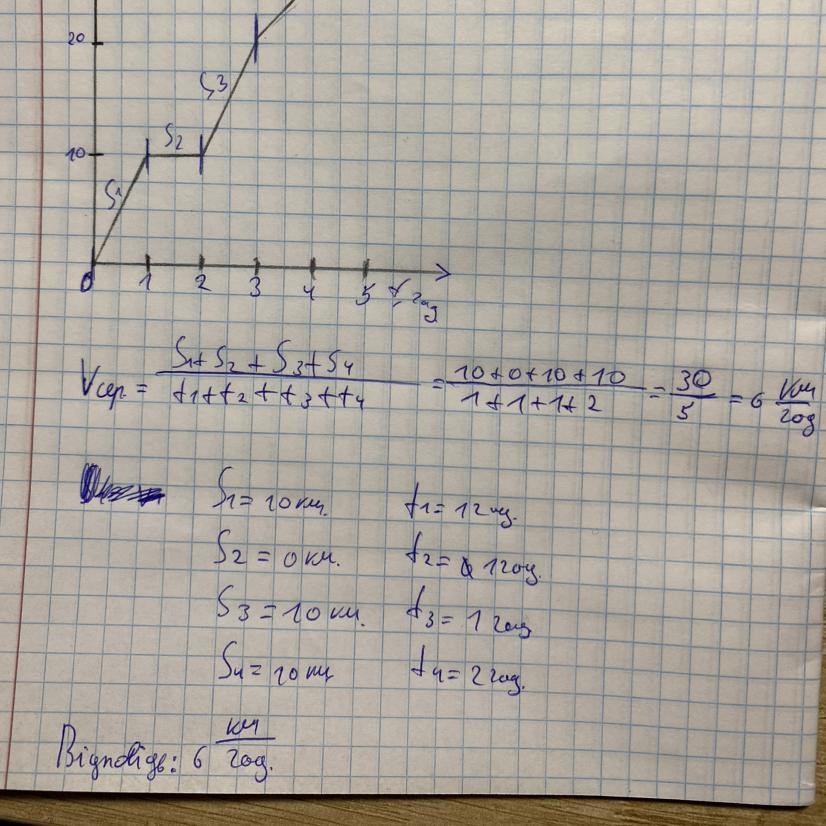 20
S3
S2
10
S1
0 1 2 3 4 5 t, год
Vсер = S1+S2+S3+S4 / t1+t2+t3+t4 = 10+0+10+10 / 1+1+1+2 = 30/5 = 6 км/год
S1=10км. t1=1год.
S2=0км. t2=1год.
S3=10км. t3=1год
S4=10км t4=2год.
Відповідь: 6 км/год.